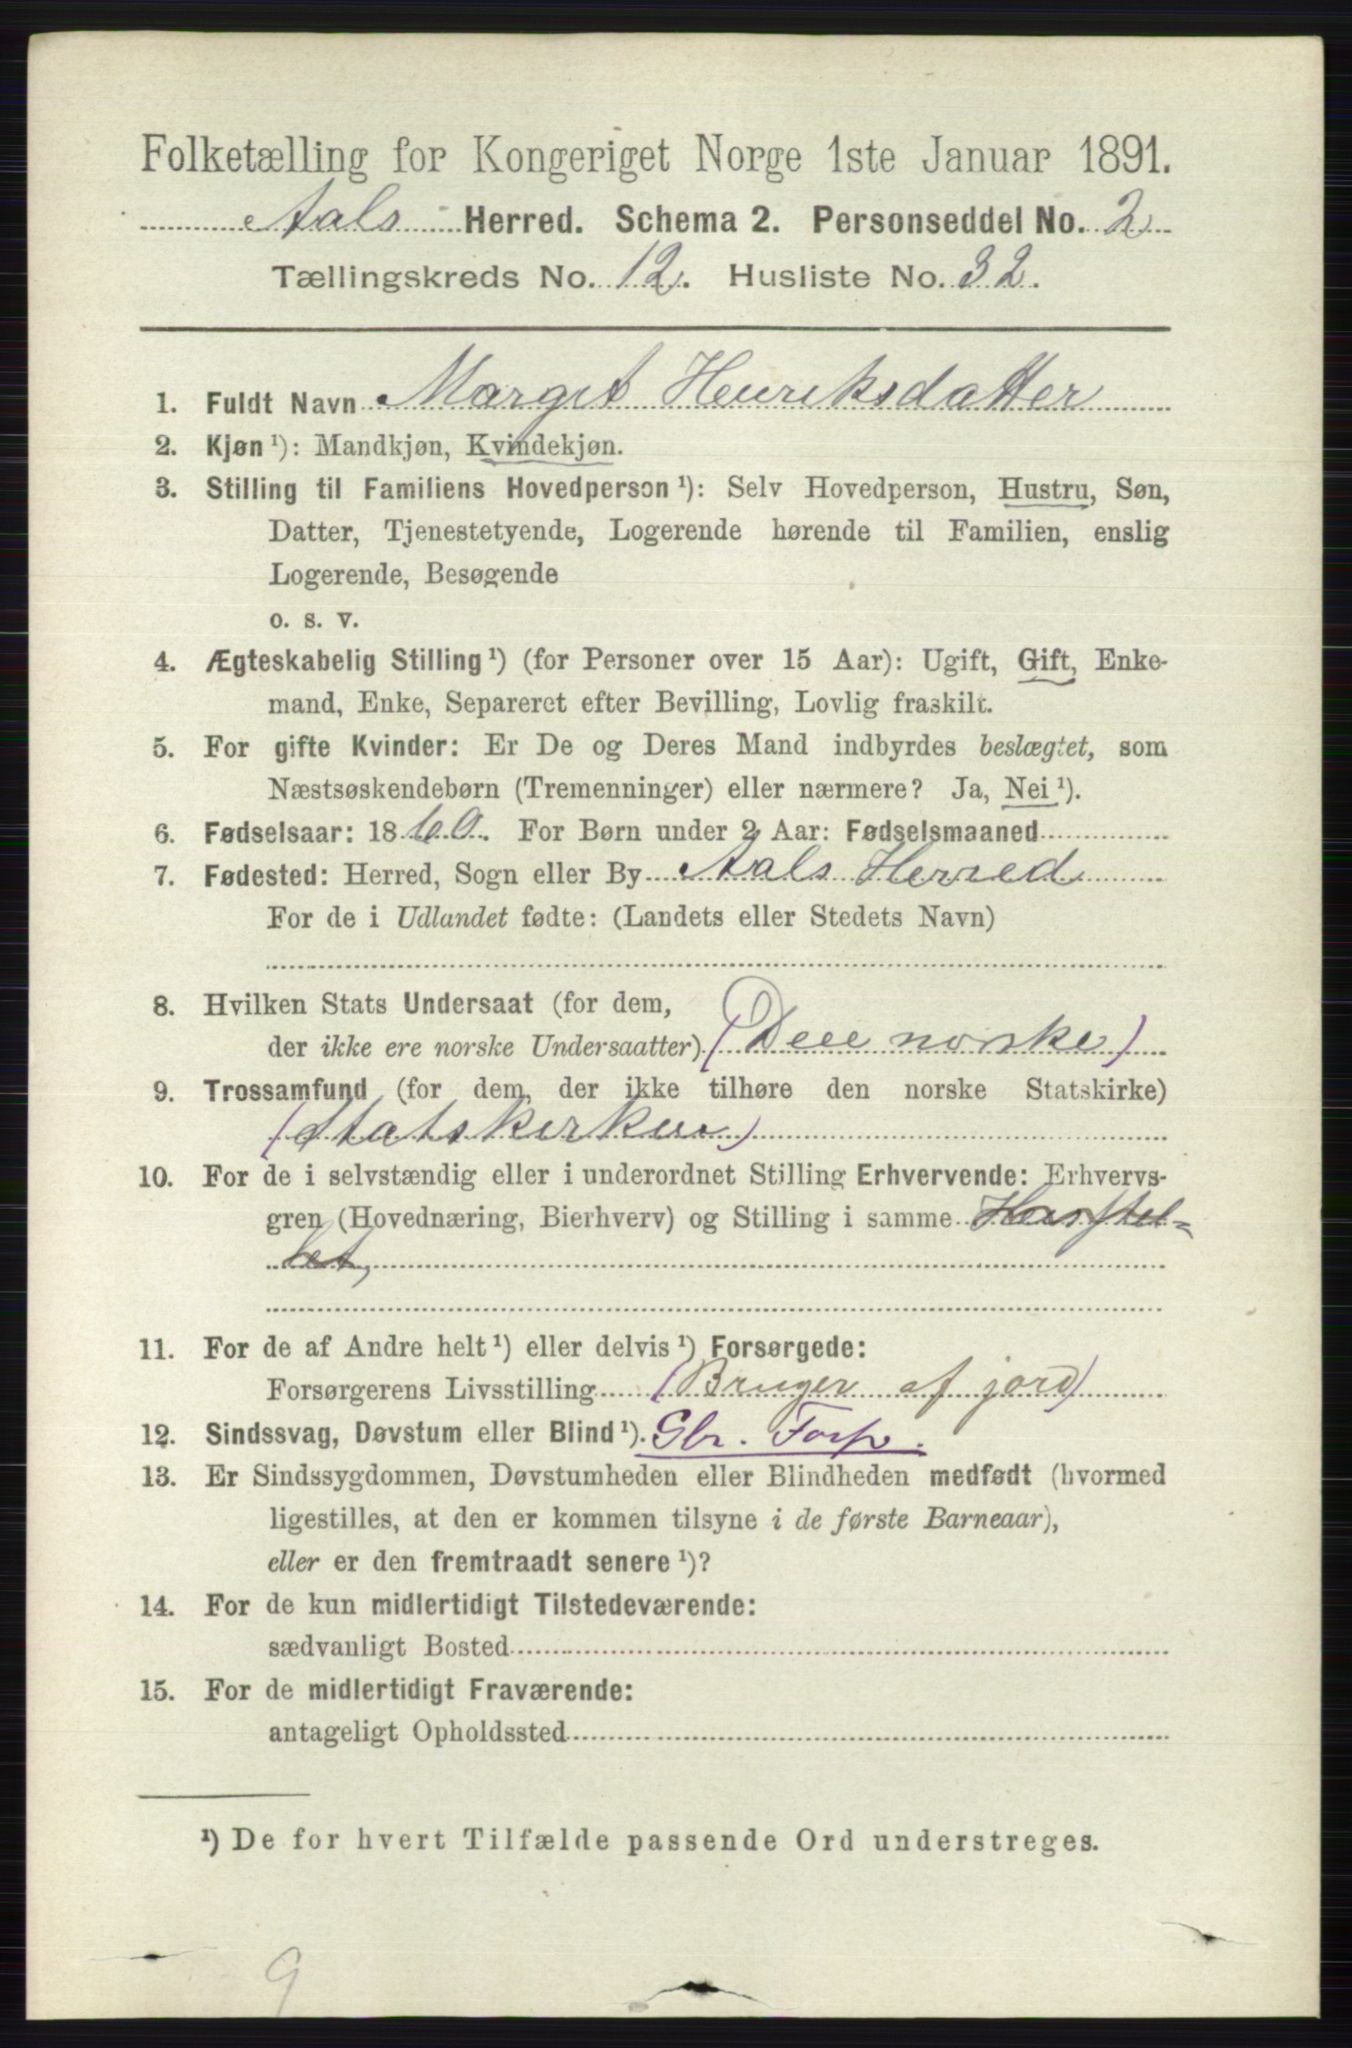 Folketælling for Kongeriget Norge 1ste Januar 1891.
Aals Herred. Schema 2. Personseddel No. 2
Tællingskreds No. 12. Husliste No. 32.
1. Fuldt Navn Margit Henriksdatter
2. Kjøn ¹): Mandkjøn, Kvindekjøn.
3. Stilling til Familiens Hovedperson ¹): Selv Hovedperson, Hustru, Søn,
Datter, Tjenestetyende, Logerende hørende til Familien, enslig
Logerende, Besøgende
o. s. v.
4. Ægteskabelig Stilling ¹) (for Personer over 15 Aar): Ugift, Gift, Enke-
mand, Enke, Separeret efter Bevilling, Lovlig fraskilt.
5. For gifte Kvinder: Er De og Deres Mand indbyrdes beslægtet, som
Næstsøskendebørn (Tremenninger) eller nærmere? Ja, Nei ¹).
6. Fødselsaar: 1860. For Børn under 2 Aar: Fødselsmaaned
7. Fødested: Herred, Sogn eller By Aals Herred
For de i Udlandet fødte: (Landets eller Stedets Navn)
8. Hvilken Stats Undersaat (for dem,
der ikke ere norske Undersaatter) (Den norske)
9. Trossamfund (for dem, der ikke tilhøre den norske Statskirke)
(Statskirken)
10. For de i selvstændig eller i underordnet Stilling Erhvervende: Erhvervs-
gren (Hovednæring, Bierhverv) og Stilling i samme Husstel-
let,
11. For de af Andre helt ¹) eller delvis ¹) Forsørgede:
Forsørgerens Livsstilling (Bruger af jord)
12. Sindssvag, Døvstum eller Blind ¹). Gbr. Forp.
13. Er Sindssygdommen, Døvstumheden eller Blindheden medfødt (hvormed
ligestilles, at den er kommen tilsyne i de første Barneaar),
eller er den fremtraadt senere ¹)?
14. For de kun midlertidigt Tilstedeværende:
sædvanligt Bosted
15. For de midlertidigt Fraværende:
antageligt Opholdssted
¹) De for hvert Tilfælde passende Ord understreges.
9